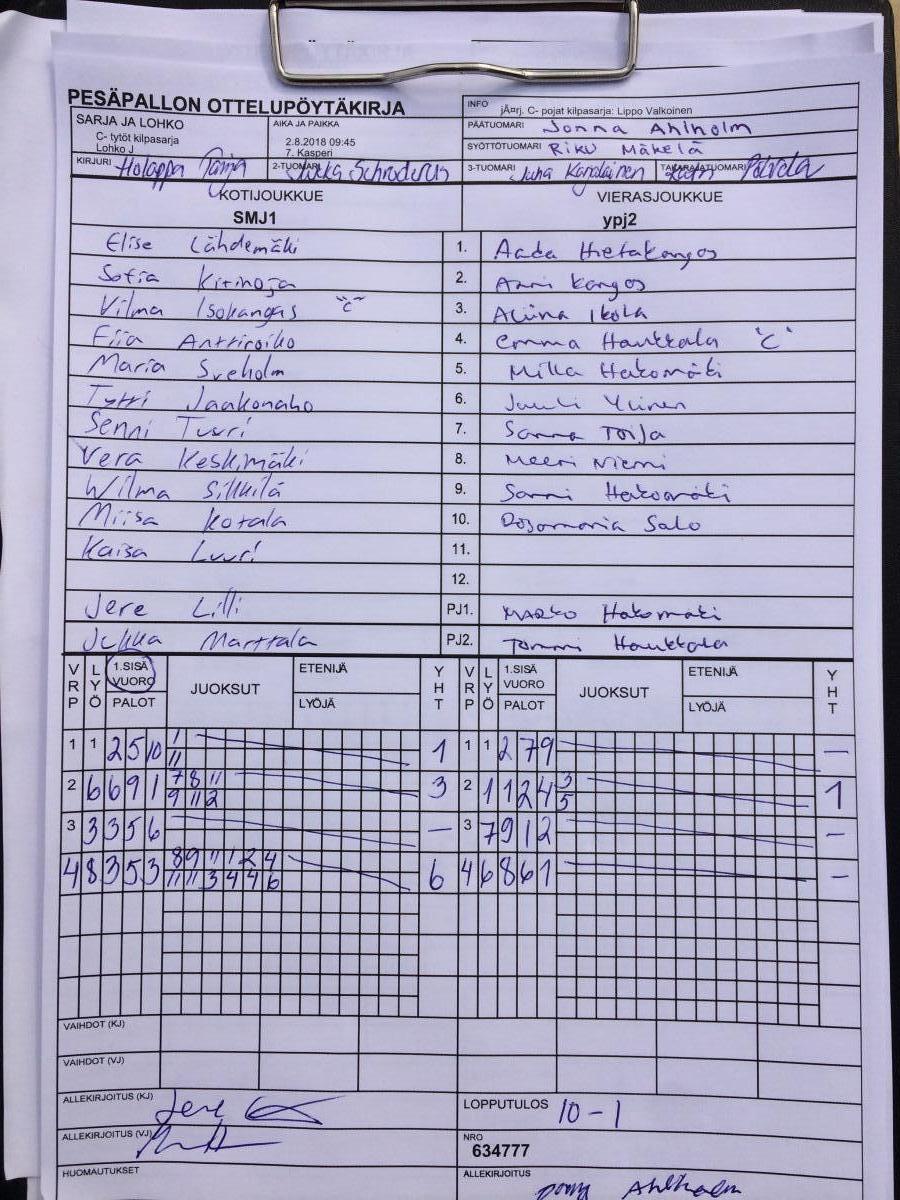 PESÄPALLON OTTELUPÖYTÄKIRJA
INFO jÃ¤rj. C- pojat kilpasarja: Lippo Valkoinen
SARJA JA LOHKO
C- tytöt kilpasarja
Lohko J
AIKA JA PAIKKA
2.8.2018 09:45
7. Kasperi
PÄÄTUOMARI Jonna Ahlholm
SYÖTTÖTUOMARI Riku Mäkelä
KIRJURI Holappa
2-TUOMARI Jukka Schroderus
3-TUOMARI Juha Karjalainen
TAKARAJATUOMARI
KOTIJOUKKUE VIERASJOUKKUE
SMJ1 ypj2
Elise Lähdemäki 1. Aada Hietakangas
Sofia Kitinoja 2. Anni Kangas
Vilma Isokangas "C" 3. Aliina Ikola
Fiia Anttiroiko 4. Emma Haukkala "C"
Maria Sveholm 5. Milka Hakomäki
Tytti Jaakonaho 6. Juuli Ylinen
Senni Tuuri 7. Sanna Toija
Vera Keskimäki 8. Meeri Niemi
Wilma Sikkilä 9. Sanni Hakomäki
Miisa Kotala 10. Rosamaria Salo
Kaisa Luuri 11.
12.
Jere Lilli PJ1. Marko Hakomäki
Jukka Marttala PJ2. Tommi Haukkala
VRP LYÖ 1.SISÄ VUORO PALOT JUOKSUT ETENIJÄ LYÖJÄ YHT VRP LYÖ 1.SISÄ VUORO PALOT JUOKSUT ETENIJÄ LYÖJÄ YHT
1 1 2 5 10 1 1 1 1 2 7 9 –
11
2 6 6 9 1 7 8 11 3 2 1 1 2 4 3 1
9 11 2 5
3 3 3 5 6 – 3 7 9 1 2 –
4 8 3 5 3 8 9 11 1 2 4 6 4 6 8 6 1 –
11 11 3 4 4 6
VAIHDOT (KJ)
VAIHDOT (VJ)
ALLEKIRJOITUS (KJ) Jere
LOPPUTULOS 10-1
ALLEKIRJOITUS (VJ)
NRO
634777
HUOMAUTUKSET
ALLEKIRJOITUS Ahlholm